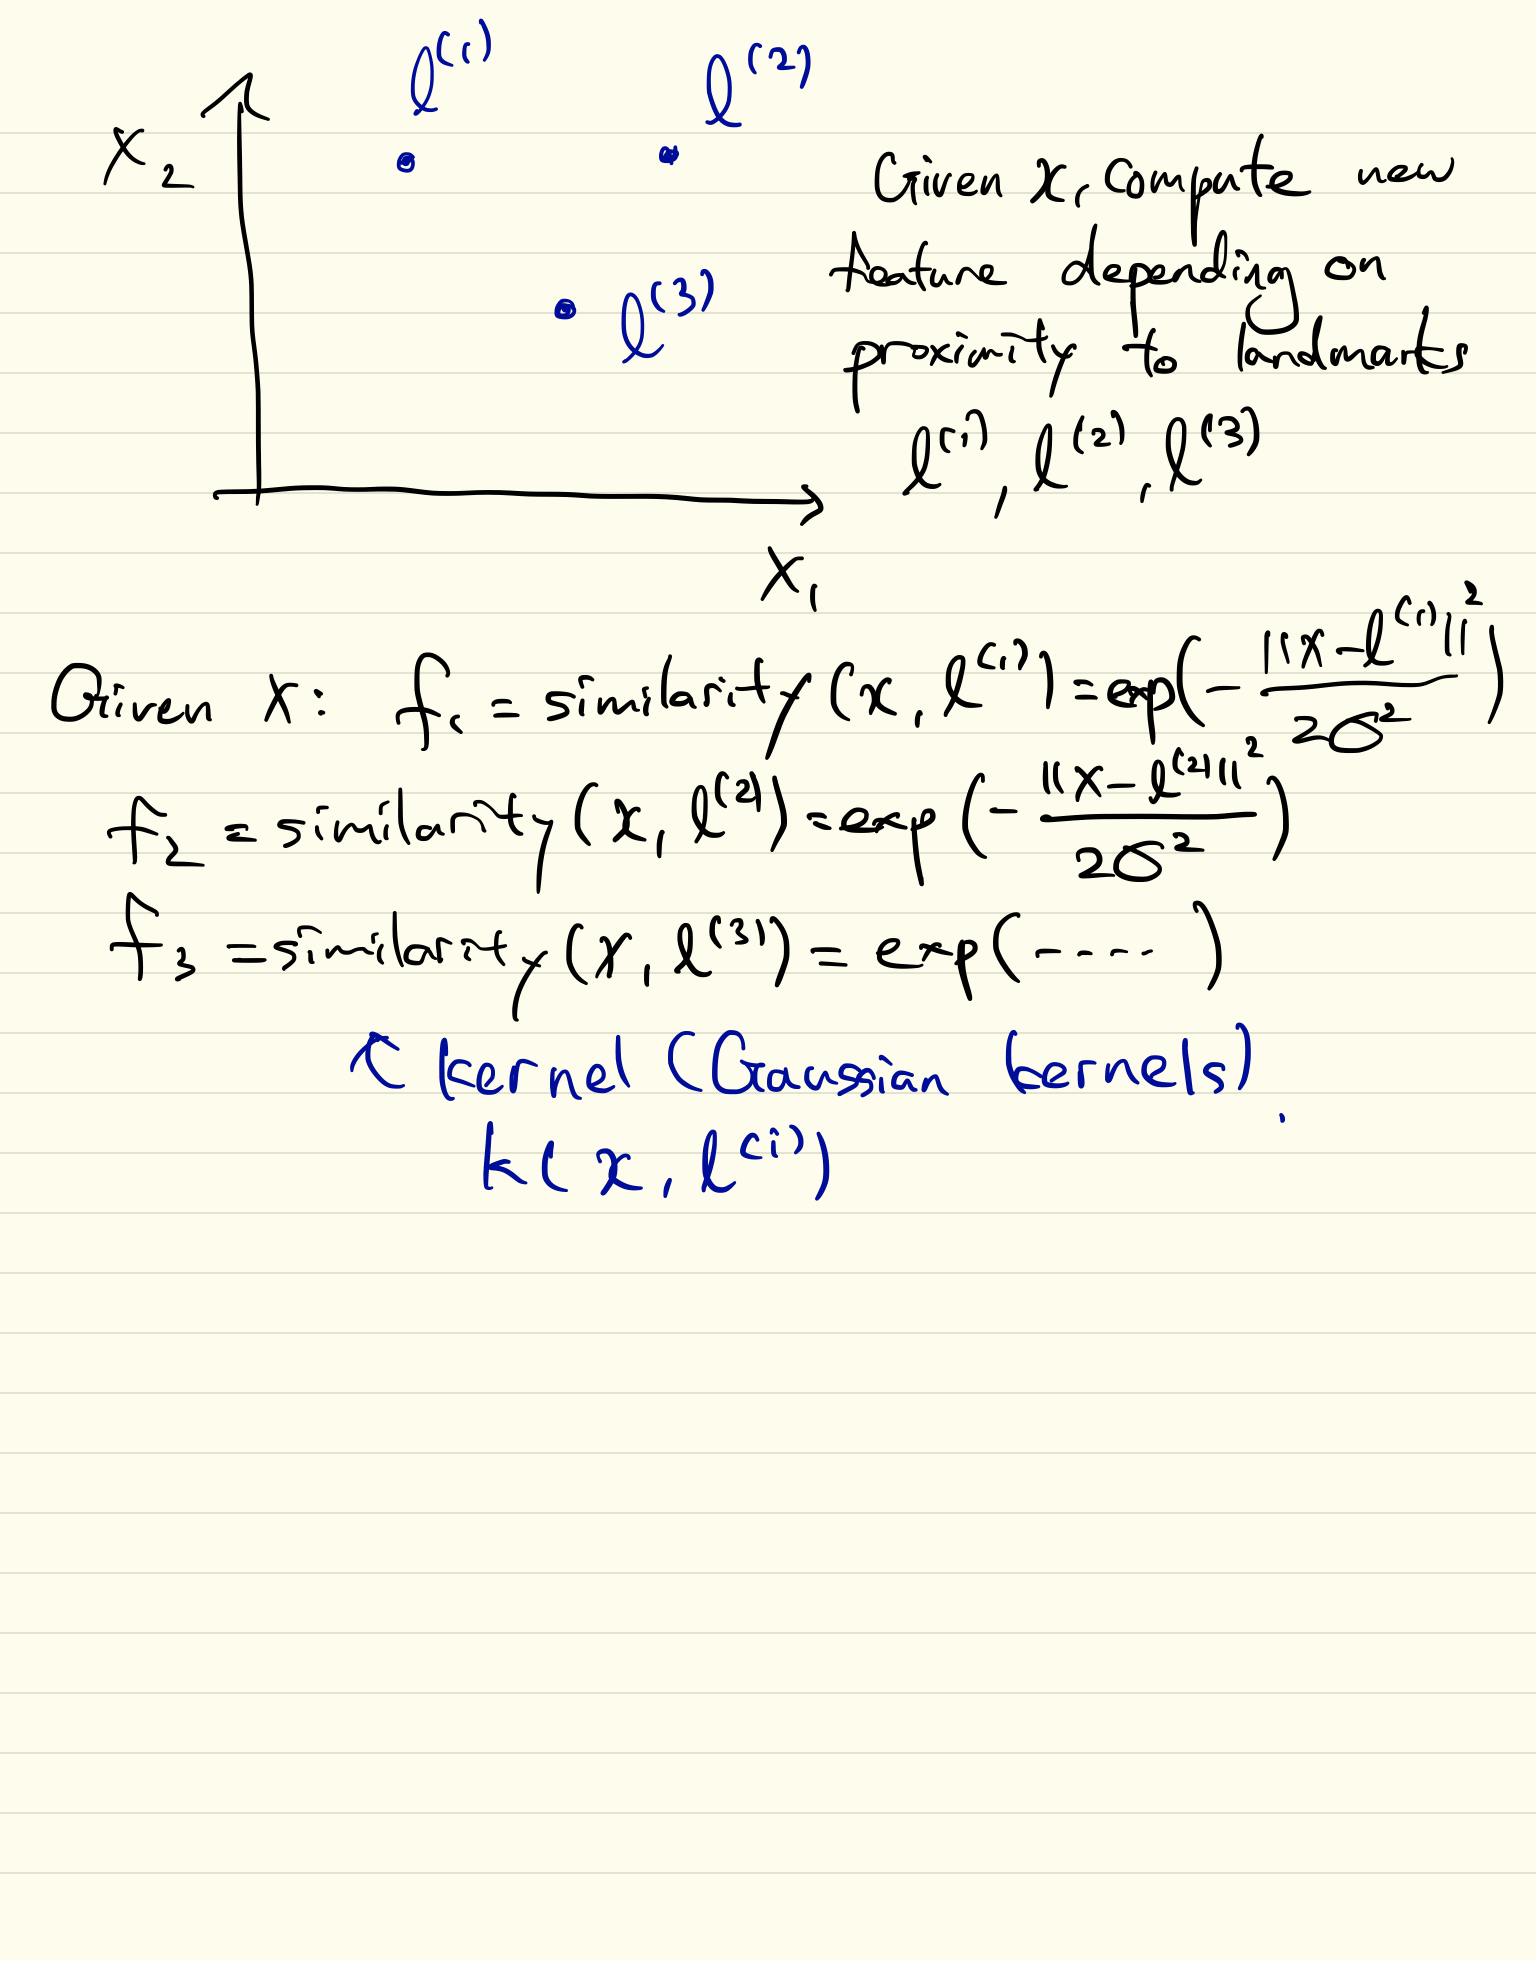 l^(1)
l^(2)
x₂
l^(3)
x₁
Given x, compute new
feature depending on
proximity to landmarks
l^(1), l^(2), l^(3)
Given x: f₁ = similarity(x, l^(1)) = exp(-||x-l^(1)||²/2σ²)
f₂ = similarity(x, l^(2)) = exp(-||x-l^(2)||²/2σ²)
f₃ = similarity(x, l^(3)) = exp(----)
↑ kernel (Gaussian kernels).
k(x, l^(i))